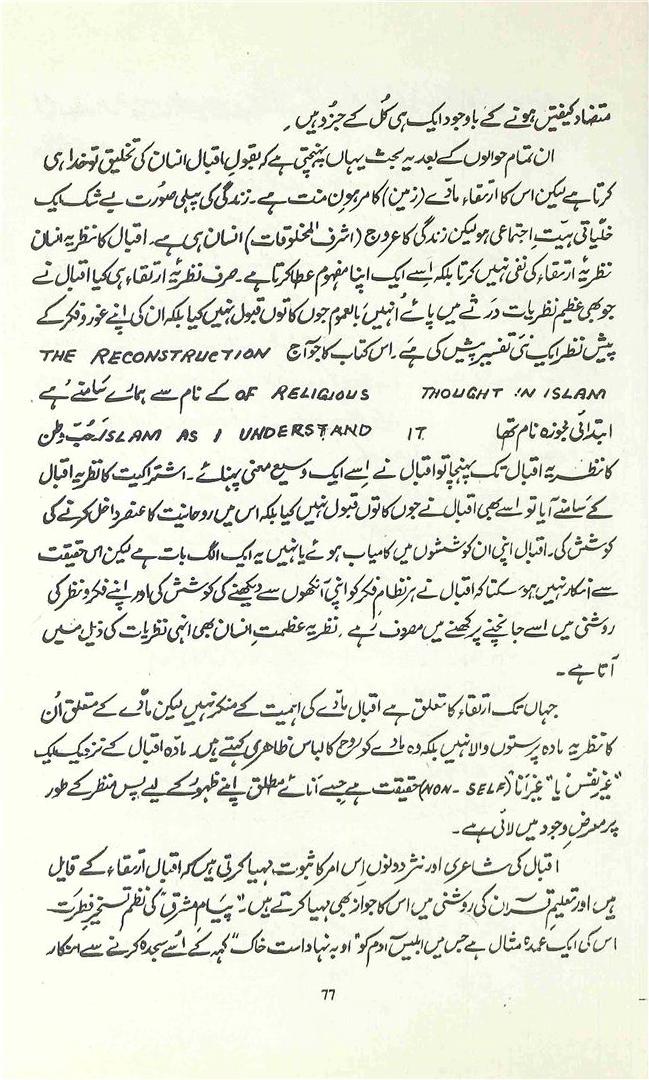 متضاد کیفیتیں ہونے کے باوجود ایک ہی کُل کے جزُو ہیں۔
ان تمام حوالوں کے بعد یہ بحث یہاں پہنچتی ہے کہ بقولِ اقبال انسان کی تخلیق تو خدا ہی
کرتا ہے لیکن اس کا ارتقاء مادّے (زمین) کا مرہونِ منت ہے۔ زندگی کی پہلی صورت بے شک ایک
خلیّاتی ہیّتِ اجتماعی ہو لیکن زندگی کا عروج (اشرف المخلوقات) انسان ہی ہے۔ اقبال کا نظریہ انسان
نظریۂ ارتقاء کی نفی نہیں کرتا بلکہ اِسے ایک اپنا مفہوم عطا کرتا ہے۔ صرف نظریۂ ارتقاء ہی کیا اقبال نے
جو بھی عظیم نظریات ورثے میں پائے اُنہیں بالعموم جوں کا توں قبول نہیں کیا بلکہ ان کی اپنے غور و فکر کے
پیش نظر ایک نئی تفسیر پیش کی ہے۔ اس کتاب کا جو آج THE RECONSTRUCTION
OF RELIGIOUS THOUGHT IN ISLAM کے نام سے ہمارے سامنے ہے
ابتدائی مجوزہ نام تھا ISLAM AS I UNDERSTAND IT حُبّ وطن
کا نظریہ اقبال تک پہنچا تو اقبال نے اِسے ایک وسیع معنی پہنائے۔ اشتراکیت کا نظریہ اقبال
کے سامنے آیا تو اسے بھی اقبال نے جوں کا توں قبول نہیں کیا بلکہ اس میں روحانیت کا عنصر داخل کرنے کی
کوشش کی۔ اقبال اپنی ان کوششوں میں کامیاب ہوئے یا نہیں یہ ایک الگ بات ہے لیکن اس حقیقت
سے انکار نہیں ہو سکتا کہ اقبال نے ہر نظامِ فکر کو اپنی آنکھوں سے دیکھنے کی کوشش کی اور اپنے فکر و نظر کی
روشنی میں اسے جانچنے پرکھنے میں مصروف رہے۔ نظریہ عظمتِ انسان بھی انہی نظریات کی ذیل میں
آتا ہے۔
جہاں تک ارتقاء کا تعلق ہے اقبال مادّے کی اہمیت کے منکر نہیں لیکن مادّے کے متعلق اُن
کا نظریہ مادہ پرستوں والا نہیں بلکہ وہ مادے کو روح کا لباس ظاہری کہتے ہیں۔ مادّہ اقبال کے نزدیک ایک
"غیر نفس" یا "غیر انا" (NON-SELF) حقیقت ہے جِسے اَنائے مطلق اپنے ظہور کے لیے پس منظر کے طور
پر معرضِ وجود میں لائی ہے۔
اقبال کی شاعری اور نثر دونوں اِس امر کا ثبوت مہیا کرتی ہیں کہ اقبال ارتقاء کے قایل
ہیں اور تعلیمِ قرآن کی روشنی میں اس کا جواز بھی مہیا کرتے ہیں۔ "پیامِ مشرق" کی نظم تسخیرِ فطرت
اس کی ایک عمدہ مثال ہے جس میں ابلیس آدم کو "او بہ نہاد است خاک" کہہ کے اُسے سجدہ کرنے سے انکار
77